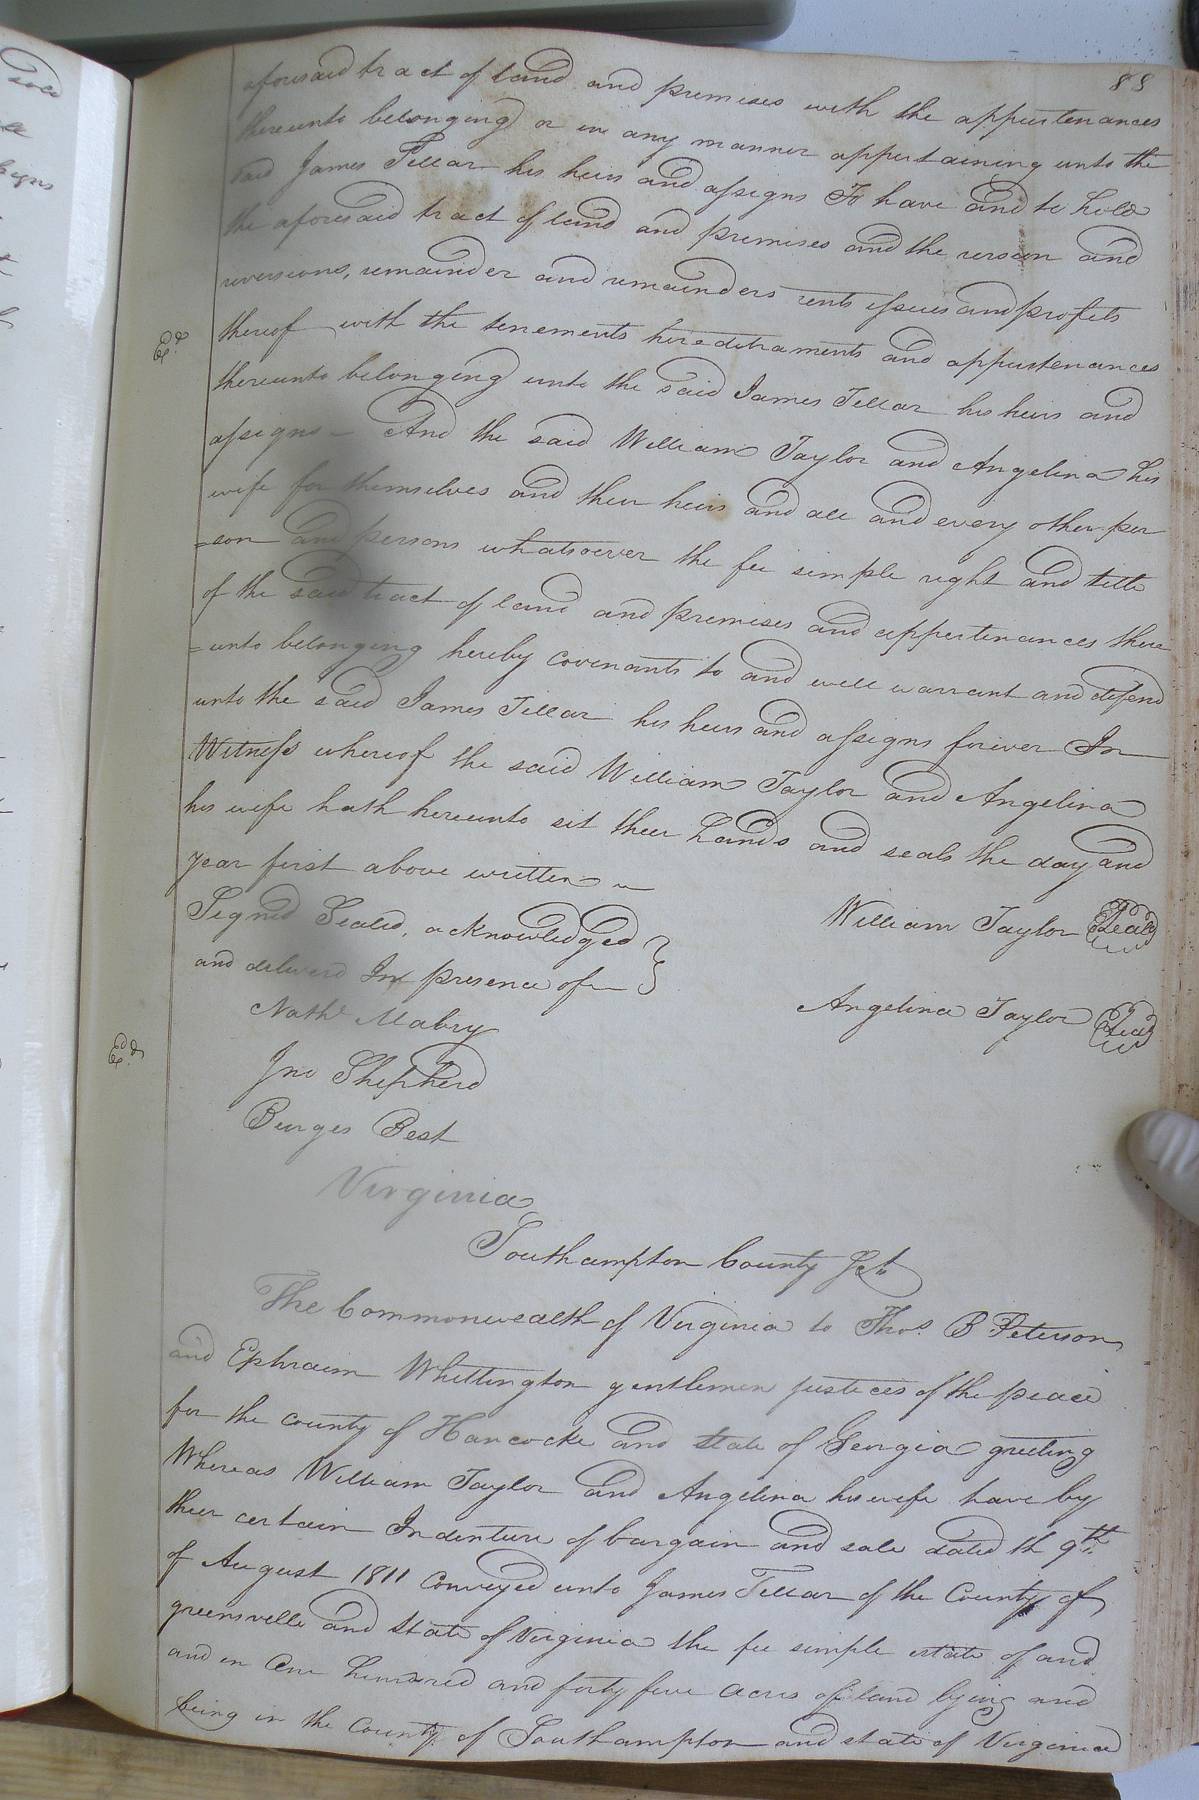 88
aforesaid tract of land and premises with the appurtenances
thereunto belonging or in any manner appertaining unto the
said James Tillar his heirs and assigns To have and to hold
the aforesaid tract of land and premises and the version and
reversions, remainder and remainders rents issues and profits
thereof with the tenements hireditraments and appurtenances
thereunto belonging unto the said James Tillar his heirs and
assigns – And the said William Taylor and Angelina his
wife for themselves and their heirs and all and every other per
=son and persons whatsoever the fee simple right and title
of the said tract of land and premises and appertinances there
=unto belonging hereby covenants to and will warrant and defend
unto the said James Tillar his heirs and assigns forever In
Witness whereof the said William Taylor and Angelina
his wife hath hereunto set their hands and seals the day and
year first above written
Signed Sealed, acknowledged
and deliverd In presence of
William Taylor Seal
Angelina Taylor Seal
Nathl Mabry
Jno Shepherd
Burges Best
Virginia
Southampton County Sct
The Commonwealth of Virginia to Thos. B Peterson
and Ephraim Whittington gentlemen justices of the peace
for the county of Hancocke and state of Georgia greeting
Whereas William Taylor and Angelina his wife have by
their certain Indenture of bargain and sale dated th 9th
of August 1811 conveyed unto James Tillar of the County of
greensville and State of Virginia the fee simple estate of and
and in One hundred and forty five acres of land lying and
being in the County of Southampton and state of Virginia